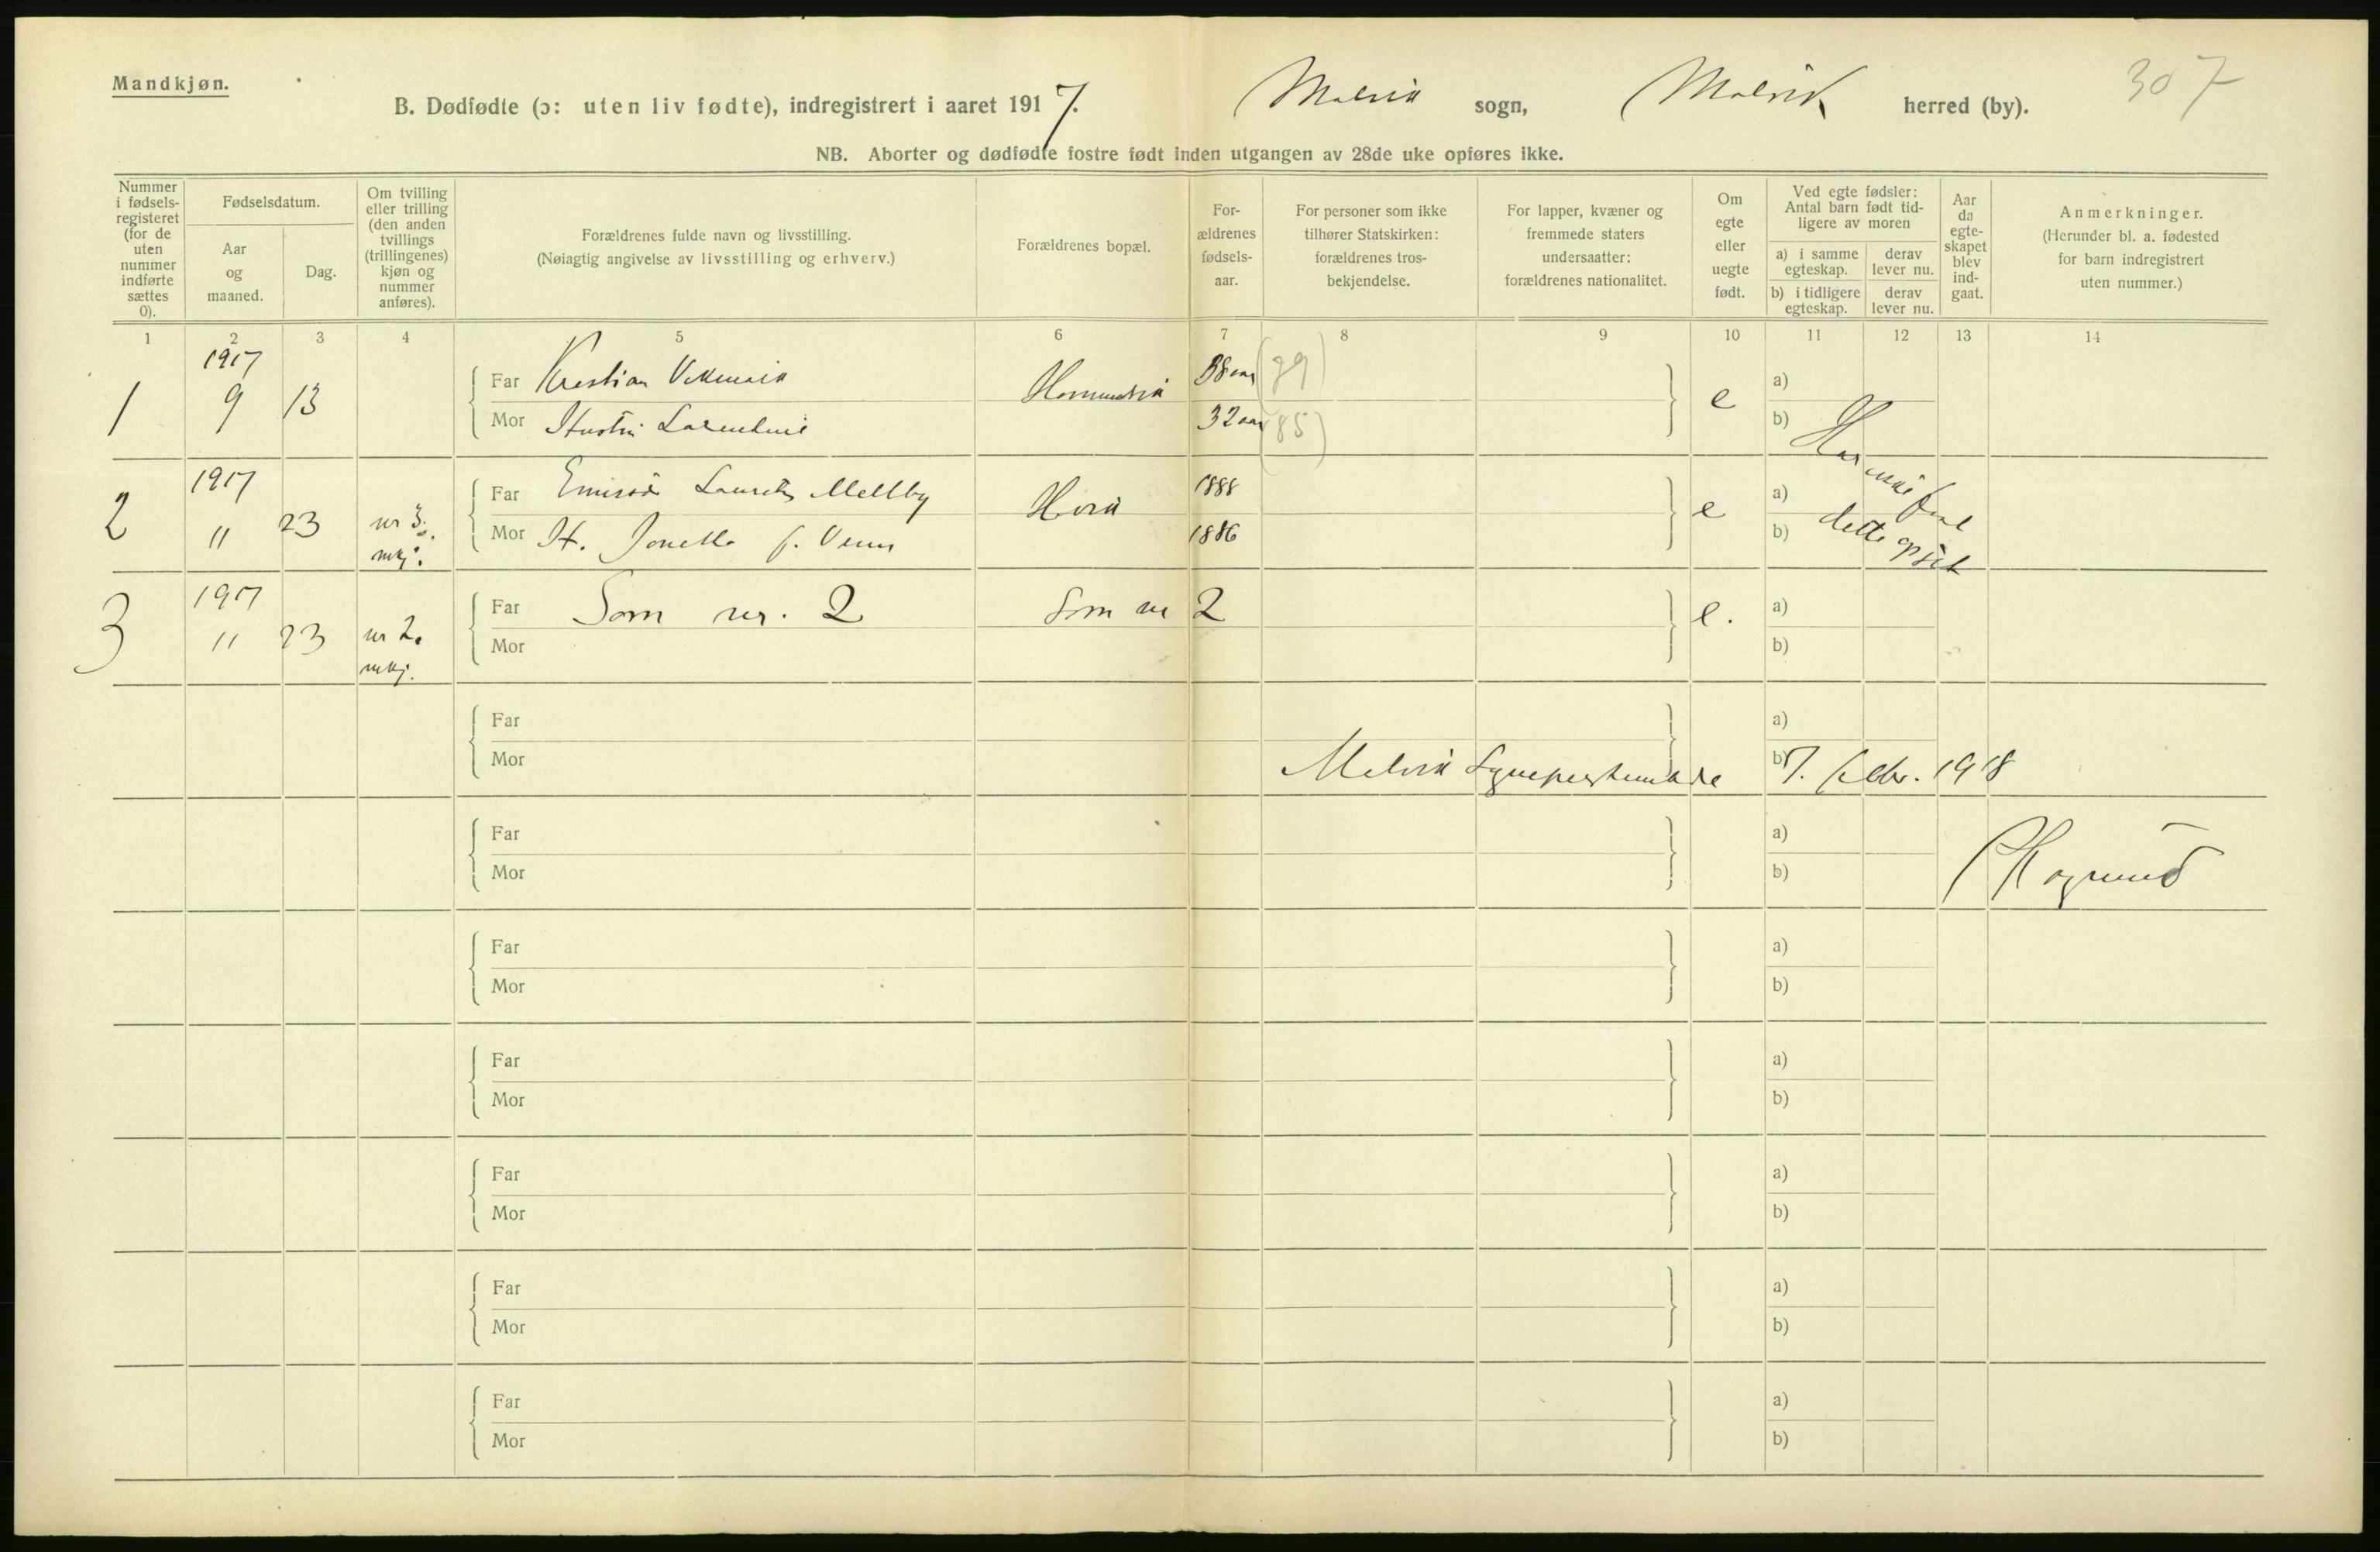 Mandkjøn.
B. Dødfødte (ɔ: uten liv fødte), indregistrert i aaret 1917. Malvik sogn, Malvik herred (by). 307
NB. Aborter og dødfødte fostre født inden utgangen av 28de uke opføres ikke.
Nummer i fødsels-registeret (for de uten nummer indførte sættes 0).
Fødselsdatum.
Aar og maaned.
Dag.
Om tvilling eller trilling (den anden tvillings (trillingenes) kjøn og nummer anføres).
Forældrenes fulde navn og livsstilling.
(Nøiagtig angivelse av livsstilling og erhverv.)
Forældrenes bopæl.
For-ældrenes fødsels-aar.
For personer som ikke tilhører Statskirken: forældrenes tros-bekjendelse.
For lapper, kvæner og fremmede staters undersaatter: forældrenes nationalitet.
Om egte eller uegte født.
Ved egte fødsler: Antal barn født tid-ligere av moren
a) i samme egteskap. derav lever nu.
b) i tidligere egteskap. derav lever nu.
Aar da egte-skapet blev ind-gaat.
Anmerkninger.
(Herunder bl. a. fødested for barn indregistrert uten nummer.)
1 2 3 4 5 6 7 8 9 10 11 12 13 14
1917
1 9 13 Far Kristian 38 aar (79) e a)
Mor Laurentine 32 aar (85) b)
1917
2 11 23 nr 3. mkj. Far Laurits Mellby 1888 e a)
Mor f. 1886 b)
Har
dette
1917
3 11 23 nr 2. mkj. Far Som nr. 2 Som nr 2 e. a)
Mor b)
Far a)
Mor Malvik b) 7. febr. 1918
Far a)
Mor b)
Far a)
Mor b)
Far a)
Mor b)
Far a)
Mor b)
Far a)
Mor b)
Far a)
Mor b)